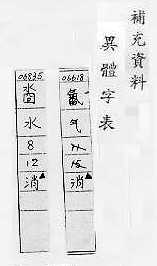 補充資料
異體字表
06618
氣
气
消
06835
水
8
12
消